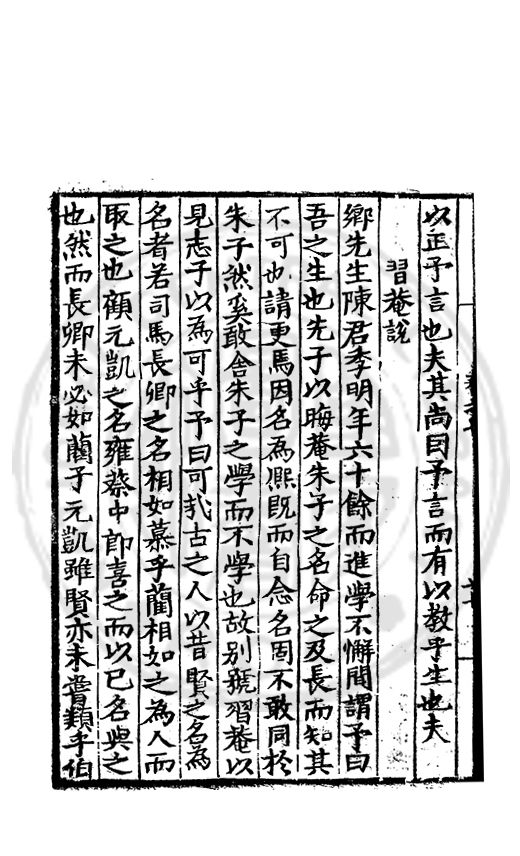 以正予言也夫其尚因予言而有以教乎生也夫
習菴說
鄉先生陳君季明年六十餘而進學不懈間謂予曰
吾之生也先子以晦菴朱子之名命之及長而知其
不可也請更焉因名為熈既而自念名固不敢同於
朱子然奚敢舍朱子之學而不學也故别號習菴以
見志子以為可乎予曰可哉古之人以昔賢之名為
名者若司馬長卿之名相如慕乎藺相如之為人而
取之也顧元凱之名雍蔡中郎喜之而以已名與之
也然而長卿未必如藺子元凱雖賢亦未嘗類乎伯